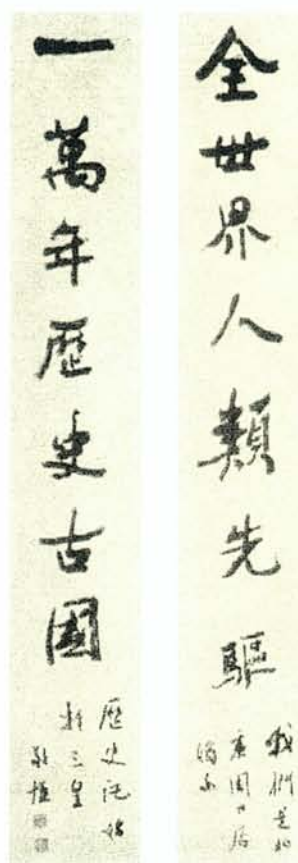 全世界人類先驅
我們是
一萬年歷史古國
歷史
三皇
敬恆